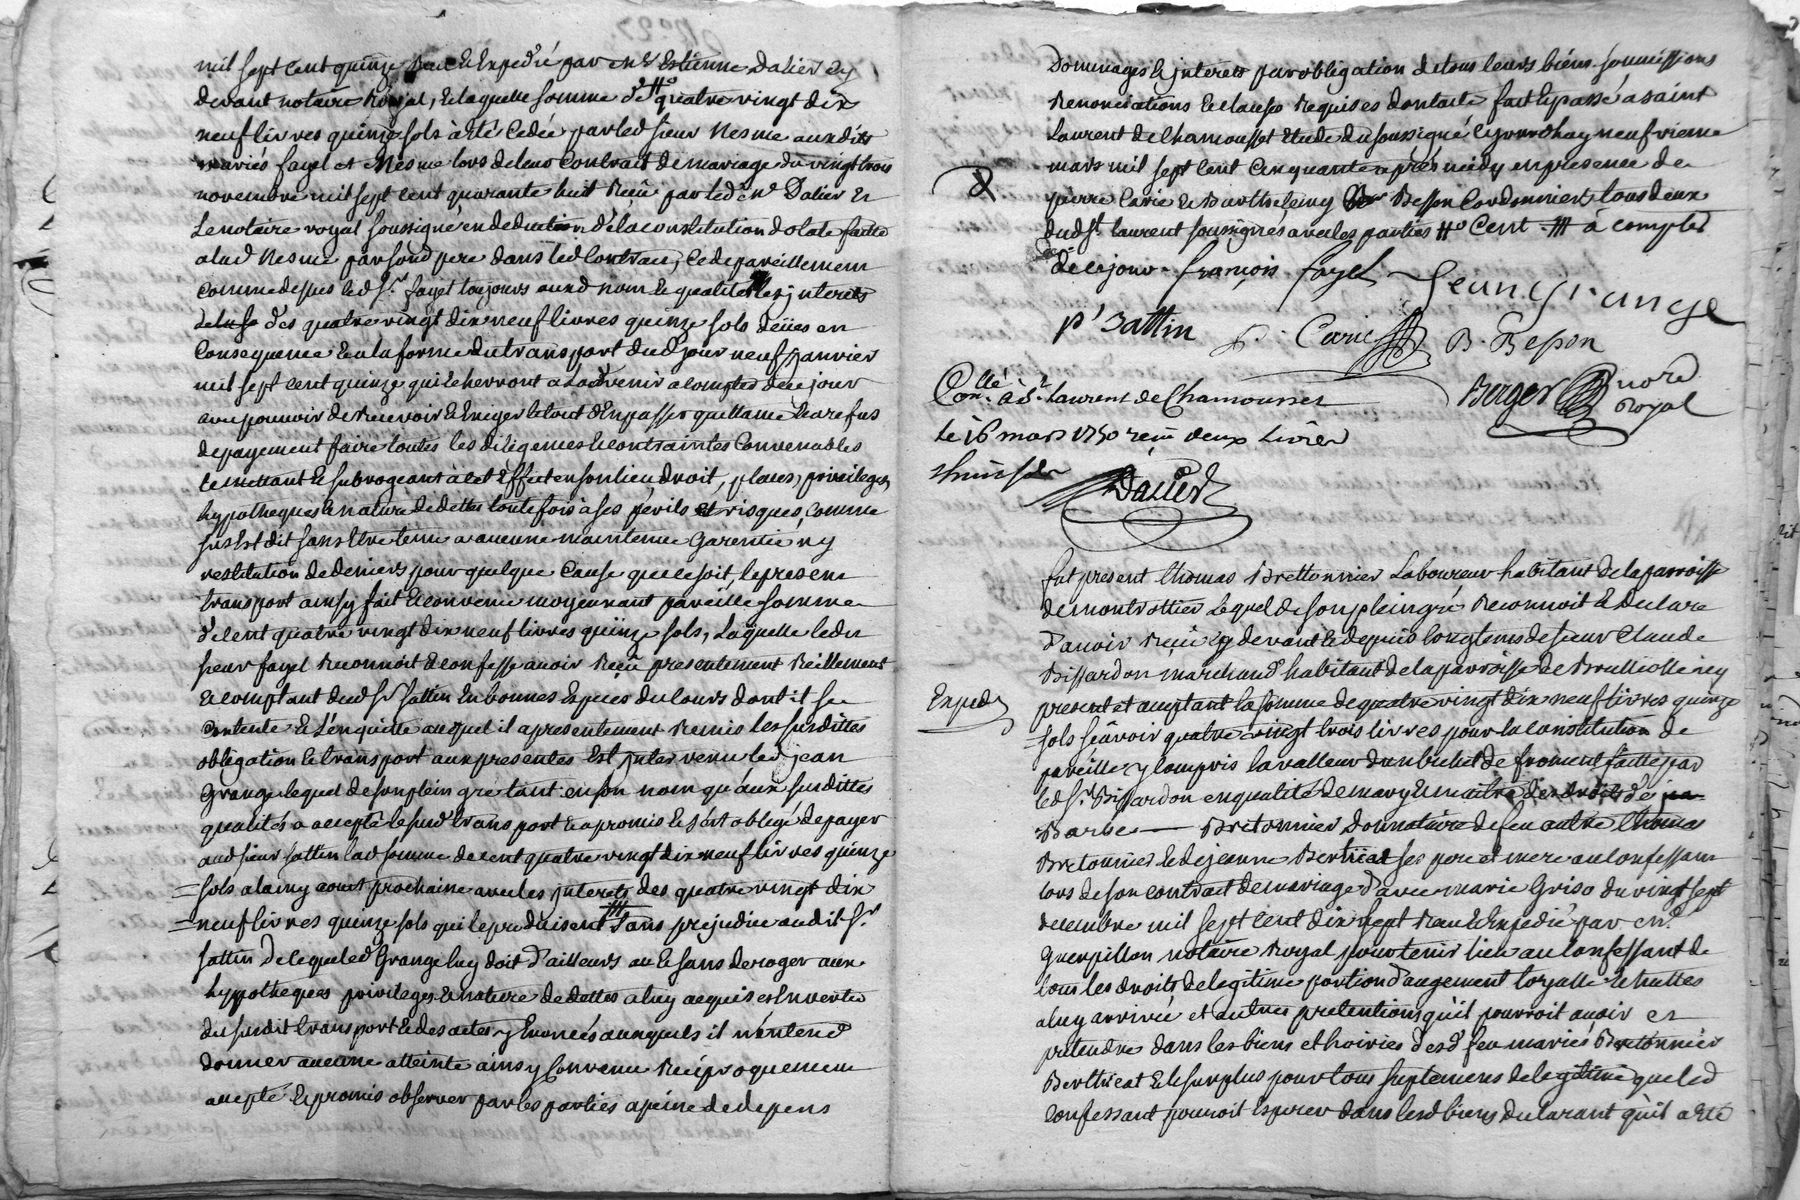 mil sept cent quinze Receu et Expedié par me Estienne Dalier cy
devant notaire Royal, Et laquelle somme de quatre vingt dix
neuf livres quinze sols à été Cedée par led sieur Nesme aux dits
mariés fayel et Nesme lors de leur Contrait de mariage du vingt trois
novembre mil sept cent quarante huit Reçu par led me Dalier Et
Le notaire royal soussigné en deduction de la constitution dotale faitte
a lad Nesme par son d pere dans led Contrait, Cede pareillement
comme dessus led sr fayel toujours aux d nom et qualités les jnterets
des quatre vingt dix neuf livres quinze sols deües en
Consequence Et en la forme du transport dud jour neuf janvier
mil sept cent quinze qui Echerront a L'advenir a comptes de ce jour
avec pouvoir de Recevoir et Exiger le tout d'En passer quittance Et a refus
de payement faire toutes les diligences et contraintes Convenables
le mettant et subrogeant à cet Effet en son lieu, droit, places, privileges,
hypotheques et nature de dettes toute fois à ses périls et risques, comme
sus Est dit sans Etre tenu a aucune maintenue Garentie ny
restitution de deniers pour quelque Cause que ce soit, le present
transport ainsy fait et convenu moyennant pareille somme
de Cent quatre vingt dix neuf livres quinze sols, Laquelle led
sieur fayel Reconnoit et confesse avoir Reçu presentement Réellement
et comptant dud sr sattin En bonnes Especes du Cours dont il se
Contente et L'en quitte auquel il a presentement Remis les susdittes
obligation et transport aux presentes Est jntervenu led jean
Grange lequel de son plein gré tant en son nom qu'aux susdittes
qualités a accepté le sud transport et a promis et s'est obligé de payer
aud sieur sattin lad somme de cent quatre vingt dix neuf livres quinze
sols a la my aout prochaine avec les jnterets des quatre vingt dix
neuf livres quinze sols qui le produisent sans prejudice audit sr
sattin de ce que led Grange luy doit d'ailleurs ou Et sans deroger aux
hypotheques privileges et nature de dettes a luy acquis en vertu
du susdit transport et des actes y Enoncés auxquels il n'entend
donner aucune atteinte ainsy Convenu Réciproquement
accepté Et promis observer par les parties a peine de depens
Dommages et jnterets par obligation de tous leurs biens soumissions
Renonciations et clauses Requises dont acte fait et passé a saint
Laurent de Chamousset Etude du soussigné cejourdhuy neufvieme
mars mil sept cent Cinquante après midy en presence de
pierre Carie et Barthelemy Besson Cordonniers tous deux
dud st laurent soussignés avec les parties Cent à comptés
de ce jour. françois fayel Jean Grange
p' sattin P. Carie B. Besson
Conllé à St. Laurent de Chamousset Berger nore Royal
le 16 mars 1750 reçu deux Livres
huit sols
Dalier
fut present Thomas Brettonnier Laboureur habitant de la parroisse
de montrottier Lequel de son plein gré Reconnoit et Declare
d'avoir Reçu cy devant et depuis longtems de sieur Claude
Bissardon marchand habitant de la parroisse de Brullioles icy
Expedé
present et acceptant la somme de quatre vingt dix neuf livres quinze
sols sçavoir quatre vingt trois livres pour la constitution de
pareille y compris la valleur d'un bichet de froment faitte par
led sr Bissardon en qualité de mary et maitre des droits de
Barbe Bretonnier Donnataire de feu autre Thomas
Bretonnier et de jeanne Bertriat ses pere et mere au Confessant
lors de son contrait de mariage d'avec marie Griso du vingt sept
decembre mil sept cent dix sept Receu et Expedié par me
Guerpillon notaire Royal pour tenir lieu au Confessant de
tous les droits de legitime portion d'augement loyalle Echuttes
a luy arrivée et autres pretentions qu'il pourroit avoir et
pretendre dans les biens et hoiries desd feu mariés Bretonnier
Berthieat et le surplus pour tous suplemens de legitime que led
Confessant pouvoit Esperer dans lesd biens declarant qu'il a Eté